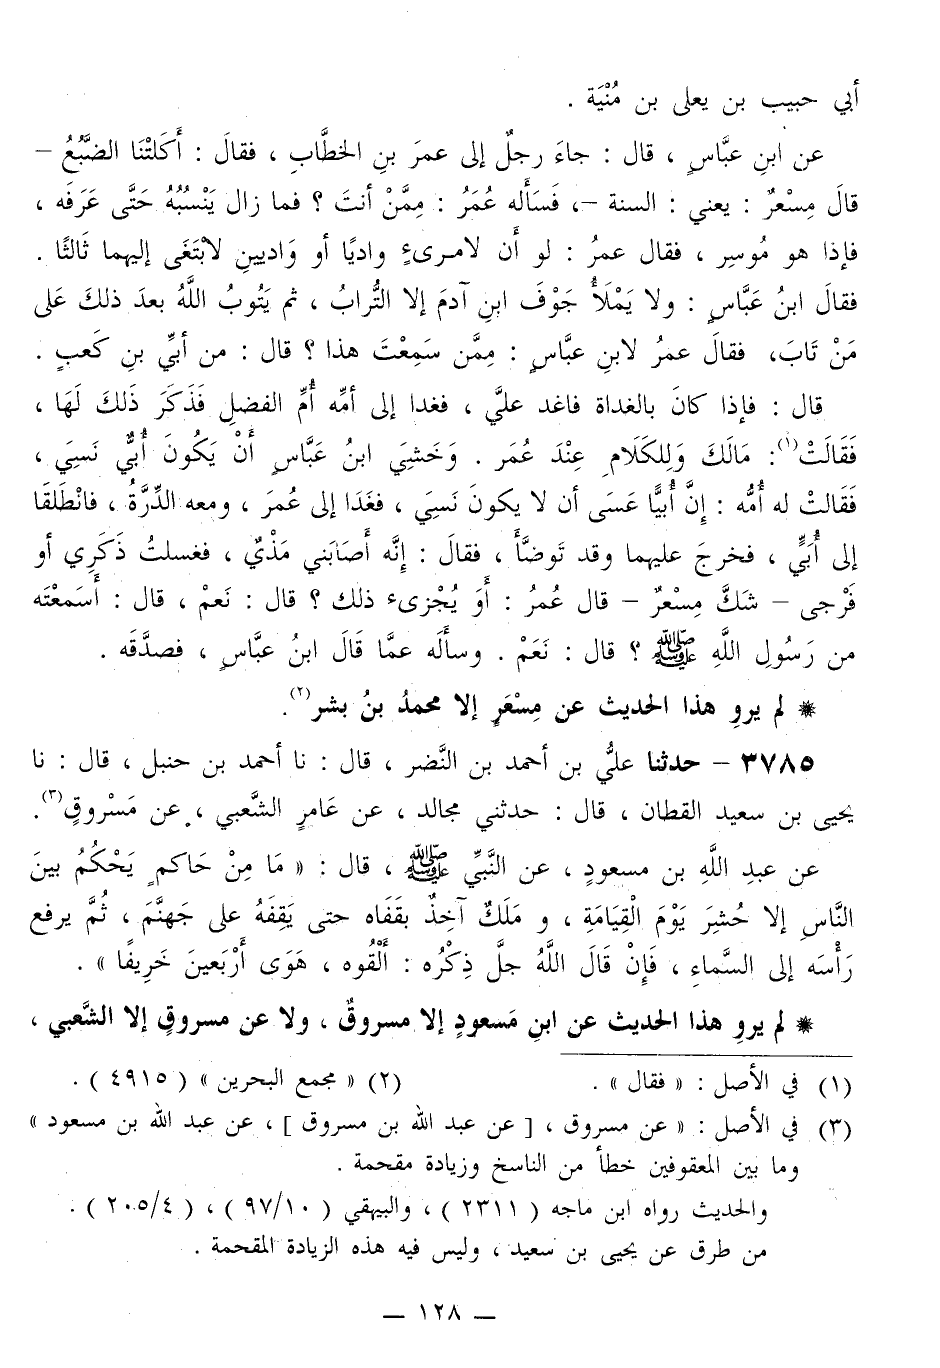 أبي حبيب بن يعلى بن مُنْيَة .
عن ابنِ عبَّاسٍ ، قال : جاءَ رجلٌ إلى عمرَ بنِ الخطَّابِ ، فقالَ : أَكَلَتْنَا الضَّبُعُ –
قالَ مِسْعرٌ : يعني : السنة –، فَسَأَله عُمَرُ : مِمَّنْ أنتَ ؟ فما زال يَنْسُبُهُ حَتَّى عَرَفَه ،
فإذا هو مُوسِر ، فقال عمرُ : لو أَن لامرىءٍ واديًا أو وَاديينِ لابْتَغَى إليهما ثَالثًا .
فقالَ ابنُ عَبَّاسٍ : ولا يَمْلَأُ جَوْفَ ابنِ آدمَ إلا التُّرابُ ، ثم يَتُوبُ اللَّهُ بعدَ ذلكَ عَلى
مَنْ تَابَ، فقالَ عمرُ لابنِ عبَّاسٍ : مِمَّن سَمِعْتَ هذا ؟ قال : من أُبيِّ بنِ كَعبٍ .
قال : فإذا كانَ بالغداة فاغد عليَّ ، فغدا إلى أمِّه أُمِّ الفضلِ فَذَكَرَ ذَلكَ لَهَا ،
فَقَالَتْ(١): مَالَكَ وَلِلكَلَامِ عِنْدَ عُمَر . وَخَشِيَ ابنُ عَبَّاسٍ أَنْ يَكُونَ أُبيٌّ نَسِيَ ،
فَقَالتْ له أُمُّه : إنَّ أُبيًّا عَسَى أن لا يكونَ نَسِيَ ، فغَدَا إلى عُمَرَ ، ومعه الدِّرَّةُ ، فانْطَلقَا
إلى أُبَيٍّ ، فخرجَ عليهما وقد تَوضَّأَ ، فقالَ : إنَّه أصَابَني مَذْيٌ ، فغسلتُ ذَكَرِي أو
فَرْجى – شَكَّ مِسْعرٌ – قال عُمرُ : أَوَ يُجْزىء ذلك ؟ قال : نَعمْ ، قال : أَسَمعْتَه
من رَسُولِ اللَّهِ ﷺ ؟ قال : نَعَمْ . وسأَلَه عمَّا قَالَ ابنُ عبَّاسٍ ، فصدَّقَه .
* لم يروِ هذا الحديث عن مِسْعَرٍ إلا محمدُ بنُ بشر(٢).
٣٧٨٥ – حدثنا عليُّ بن أحمد بن النَّضر ، قال : نا أحمد بن حنبل ، قال : نا
يحيى بن سعيد القطان ، قال : حدثني مجالد ، عن عَامرٍ الشَّعبي ، عن مَسْروقٍ(٣).
عن عبدِ اللَّهِ بن مسعودٍ ، عن النَّبيِّ ﷺ ، قال : « مَا مِنْ حَاكمٍ يَحْكُمُ بينَ
النَّاسِ إلا حُشِرَ يَوْمَ الْقِيَامَةِ ، و مَلَكٌ آخِذٌ بقَفَاه حتى يَقِفَهُ على جَهنَّمَ ، ثُمَّ يرفع
رَأْسَه إلى السَّماءِ ، فَإِنْ قَالَ اللَّهُ جلَّ ذِكْرُه : أَلْقُوه ، هَوَى أَرْبَعينَ خَرِيفًا » .
* لم يروِ هذا الحديث عن ابنِ مَسعودٍ إلا مسروقٌ ، ولا عن مسروقٍ إلا الشَّعبي ،
(١) في الأصل : « فقال » . (٢) « مجمع البحرين » ( ٤٩١٥ ) .
(٣) في الأصل : « عن مسروق ، [ عن عبد الله بن مسروق ] ، عن عبد الله بن مسعود »
وما بين المعقوفين خطأ من الناسخ وزيادة مقحمة .
والحديث رواه ابن ماجه ( ٢٣١١ ) ، والبيهقي ( ٩٧/١٠ ) ، ( ٢٠٥/٤ ) .
من طرق عن يحيى بن سعيد ، وليس فيه هذه الزيادة المقحمة .
– ١٢٨ –